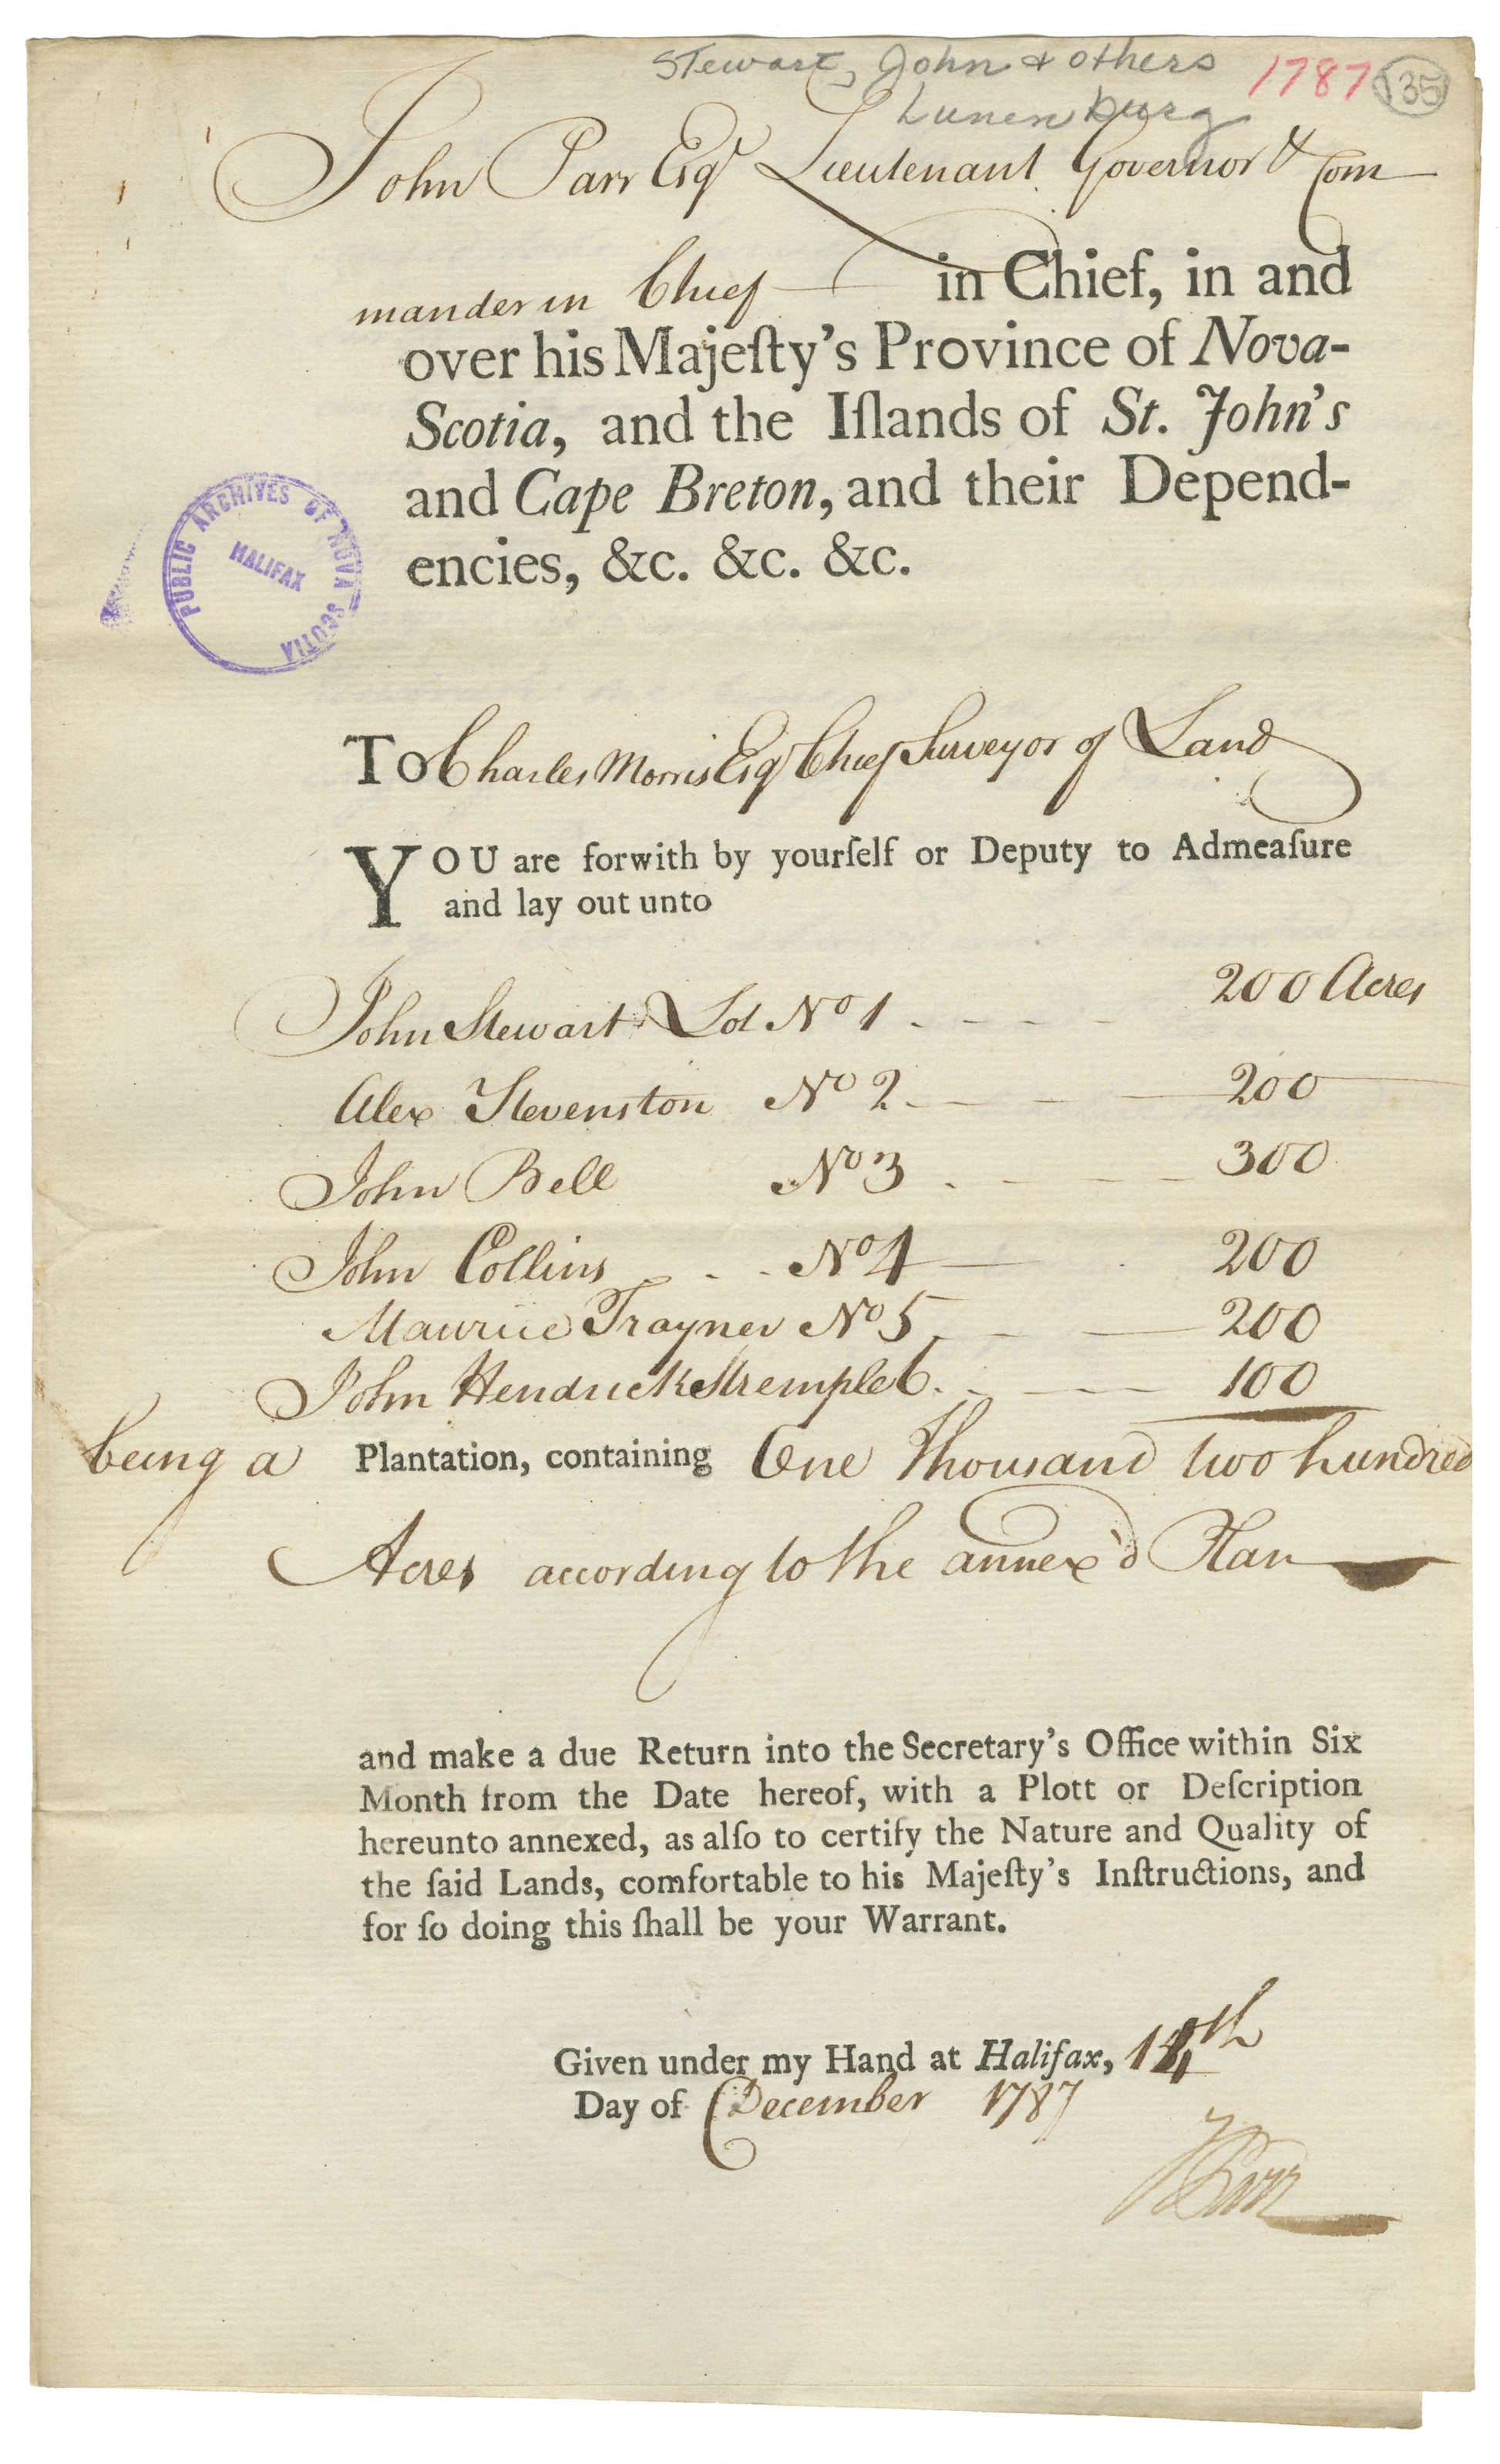 Stewart, John & others 1787 135
Lunenburg
John Parr Esqr Lieutenant Governor & Com
mander in Chief in Chief, in and
over his Majeſty's Province of Nova-
Scotia, and the Iſlands of St. John's
and Cape Breton, and their Depend-
encies, &c. &c. &c.
PUBLIC ARCHIVES OF NOVA SCOTIA
HALIFAX
To Charles Morris Esqr Chief Surveyor of Land
YOU are forwith by yourſelf or Deputy to Admeaſure
and lay out unto
John Stewart Lot No 1 - - - - 200 Acres
Alex Stevenston No 2 - - - 200
John Bell No 3 - - - - 300
John Collins - - No 4 - 200
Maurice Trayner No 5 - - 200
John Hendrick Stremple 6. - - - 100
being a Plantation, containing One Thousand two hundred
Acres according to the annex'd Plan
and make a due Return into the Secretary's Office within Six
Month from the Date hereof, with a Plott or Deſcription
hereunto annexed, as alſo to certify the Nature and Quality of
the ſaid Lands, comfortable to his Majeſty's Inſtructions, and
for ſo doing this ſhall be your Warrant.
Given under my Hand at Halifax, 14th
Day of December 1787
J Parr